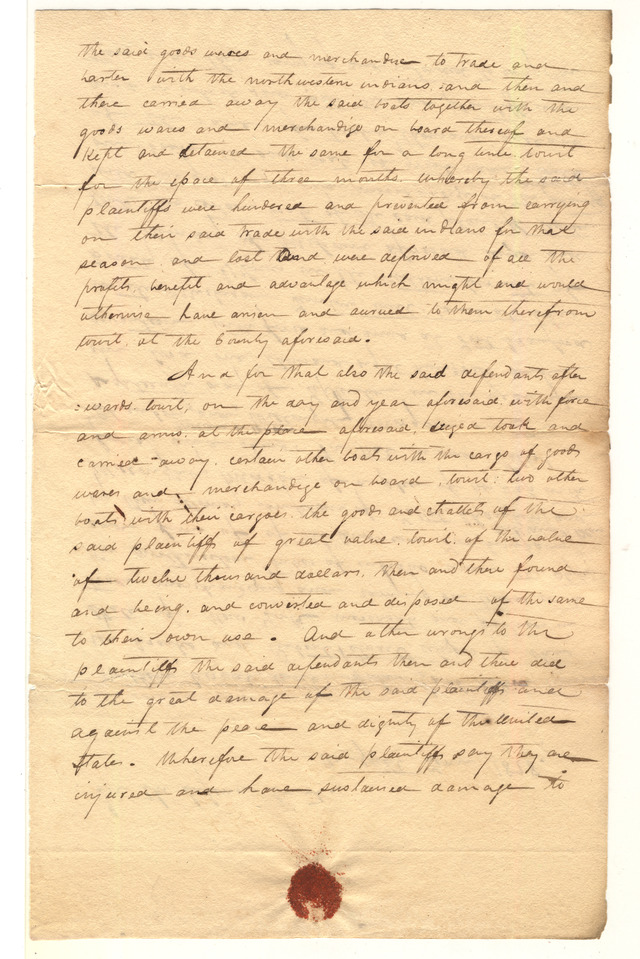 the said goods wares and merchandise to trade and
barter with the northwestern indians, and then and
there carried away the said boats together with the
goods wares and merchandize on board thereof and
Kept and detained the same for a long time towit
for the space of three months. Whereby the said
plaintiffs were hindered and prevented from carrying
on their said trade with the said indians for that
season, and lost and were deprived of all the
profits, benefit and advantage which might and would
otherwise have arisen and acrued to them therefrom
towit, at the County aforesaid.
And for that also the said defendants after
=wards, towit, on the day and year aforesaid, with force
and arms, at the place aforesaid, seized took and
carried away, certain other boats with the cargo of goods
wares and merchandize on board, towit: two other
boats with their cargoes, the goods and chattels of the
said plaintiffs of great value, towit, of the value
of twelve thousand dollars, then and there found
and being, and converted and disposed of the same
to their own use. And other wrongs to the
plaintiffs the said defendants then and there did
to the great damage of the said plaintiffs and
against the peace and dignity of the United
States. Wherefore the said plaintiffs say they are
injured and have sustained damage to